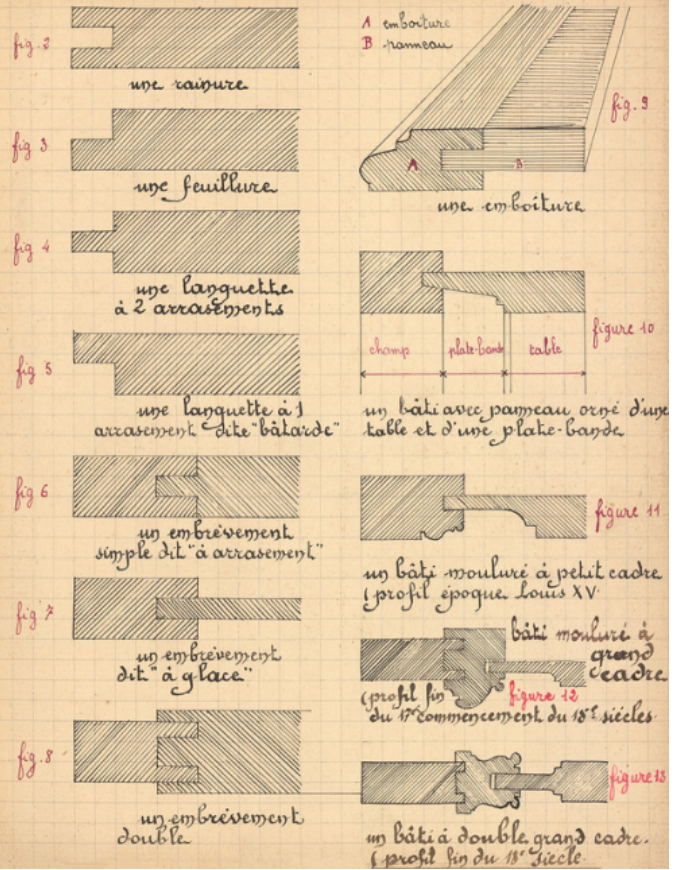 fig. 2
une rainure
fig 3
une feuillure
fig 4
une languette
à 2 arrasements
fig 5
une languette à 1
arrasement dite "bâtarde"
fig 6
un embrèvement
simple dit "à arrasement"
fig 7
un embrèvement
dit "à glace"
fig. 8
un embrèvement
double
A emboiture
B panneau
fig. 9
A
B
une emboiture
figure 10
champ
plate-bande
table
un bâti avec panneau orné d'une
table et d'une plate-bande
figure 11
un bâti mouluré à petit cadre
(profil époque Louis XV.
bâti mouluré à
grand
cadre
figure 12
(profil fin
du 17e commencement du 18e siècles.
figure 13
un bâti à double grand cadre.
(profil fin du 18e siècle.